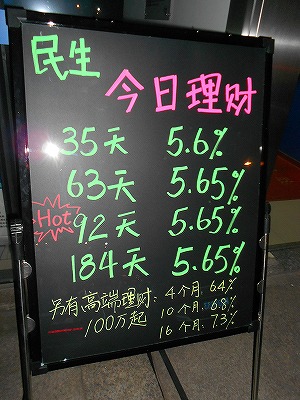 民生
今日理财
35天 5.6%
63天 5.65%
Hot
92天 5.65%
184天 5.65%
另有高端理财: 4个月: 6.4%
100万起 10个月: 6.8%
16个月: 7.3%